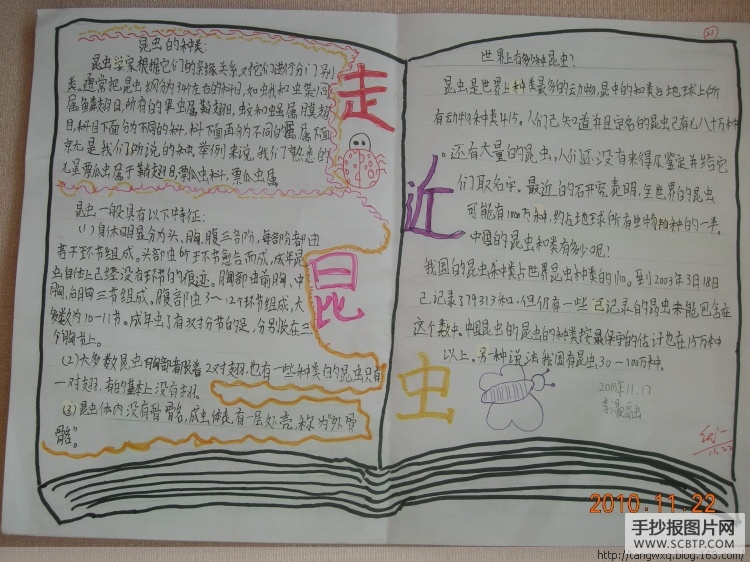 昆虫的种类:
昆虫学家根据它们的亲缘关系,对它们进行分门别
类。通常把昆虫纲分为30左右的科目,如蛾和虫
属鳞翅目,所有的甲虫属鞘翅目,蚁和蚂属膜翅
目,科目下面分为不同的科,科下面再分为不同的属,属下面
就是我们所说的种。举例来说,我们熟悉的
七星瓢虫属于鞘翅目,瓢虫科,瓢虫属
昆虫一般具有以下特征:
(1)身体明显分为头、胸、腹三部份,每部份都由
若干环节组成。头部由于环节愈合而成,成年昆
虫自体上已经没有环节的痕迹。胸部由前胸、中
胸、后胸三节组成。腹部由3~12个环节组成,大
多数为10-11节。成年虫了有3对分节的足,分别长在三
个胸节上。
(2)大多数昆虫胸部都长着2对翅,也有一些种类自的昆虫只有
一对翅,有的基本上没有翅。
(3)昆虫体内没有骨骼,成虫体表有一层外壳,称为“外骨
骼”。
走
近
昆
虫
21
世界上有多少种昆虫?
昆虫是世界上种类最多的动物,昆虫的种类占地球上所
有动物种类4/5。人们已知道并且定名的昆虫已有七八十万种
。还有大量的昆虫,人们还没有来得及鉴定并给它
们取名字。最近的研究表明,全世界的昆虫
可能有1000万种,约占地球所有生物物种的一半。
中国的昆虫种类有多少呢?
我国的昆虫种类占世界昆虫种类的1/10。到2003年3月18日
已记录了79313种,但仍有一些已记录的昆虫未能包含在
这个数中。中国昆虫的昆虫的种类按最保守的估计也在15万种
以上。另一种说法我国有昆虫30-100万种。
2010年11.17
11.22
2010.11.22
手抄报图片网
WWW.SCBTP.COM
http://tangwxq.blog.163.com/